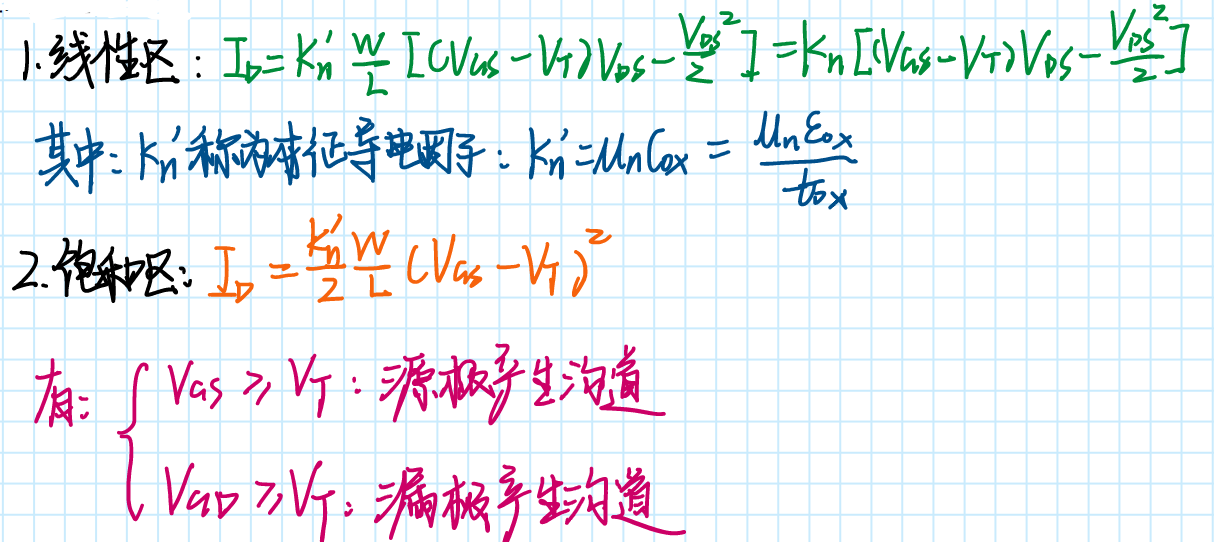 1.线性区: I_D = K_n' W/L [(V_GS − V_T)V_DS − V_DS²/2] = K_n[(V_GS − V_T)V_DS − V_DS²/2]
其中: K_n' 称为本征导电因子: K_n' = μ_n C_ox = μ_n ε_ox / t_ox
2.饱和区: I_D = K_n'/2 W/L (V_GS − V_T)²
有: { V_GS ⩾ V_T: 源极产生沟道
V_GD ⩾ V_T: 漏极产生沟道